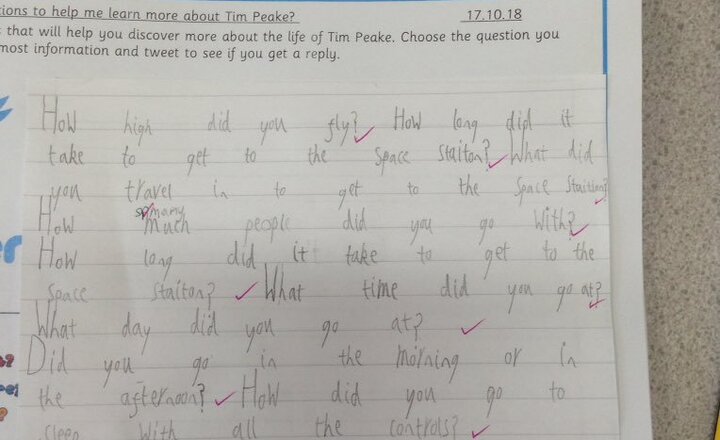 ions to help me learn more about Tim Peake? 17.10.18
that will help you discover more about the life of Tim Peake. Choose the question you
most information and tweet to see if you get a reply.
How high did you fly? How long did it
take to get to the Space Staiton? What did
you travel in to get to the Space Staition?
sp many
How much people did you go with?
How long did it take to get to the
Space Staiton? What time did you go at?
What day did you go at?
Did you go in the morning or in
the afternoon? How did you go to
sleep with all the controls?